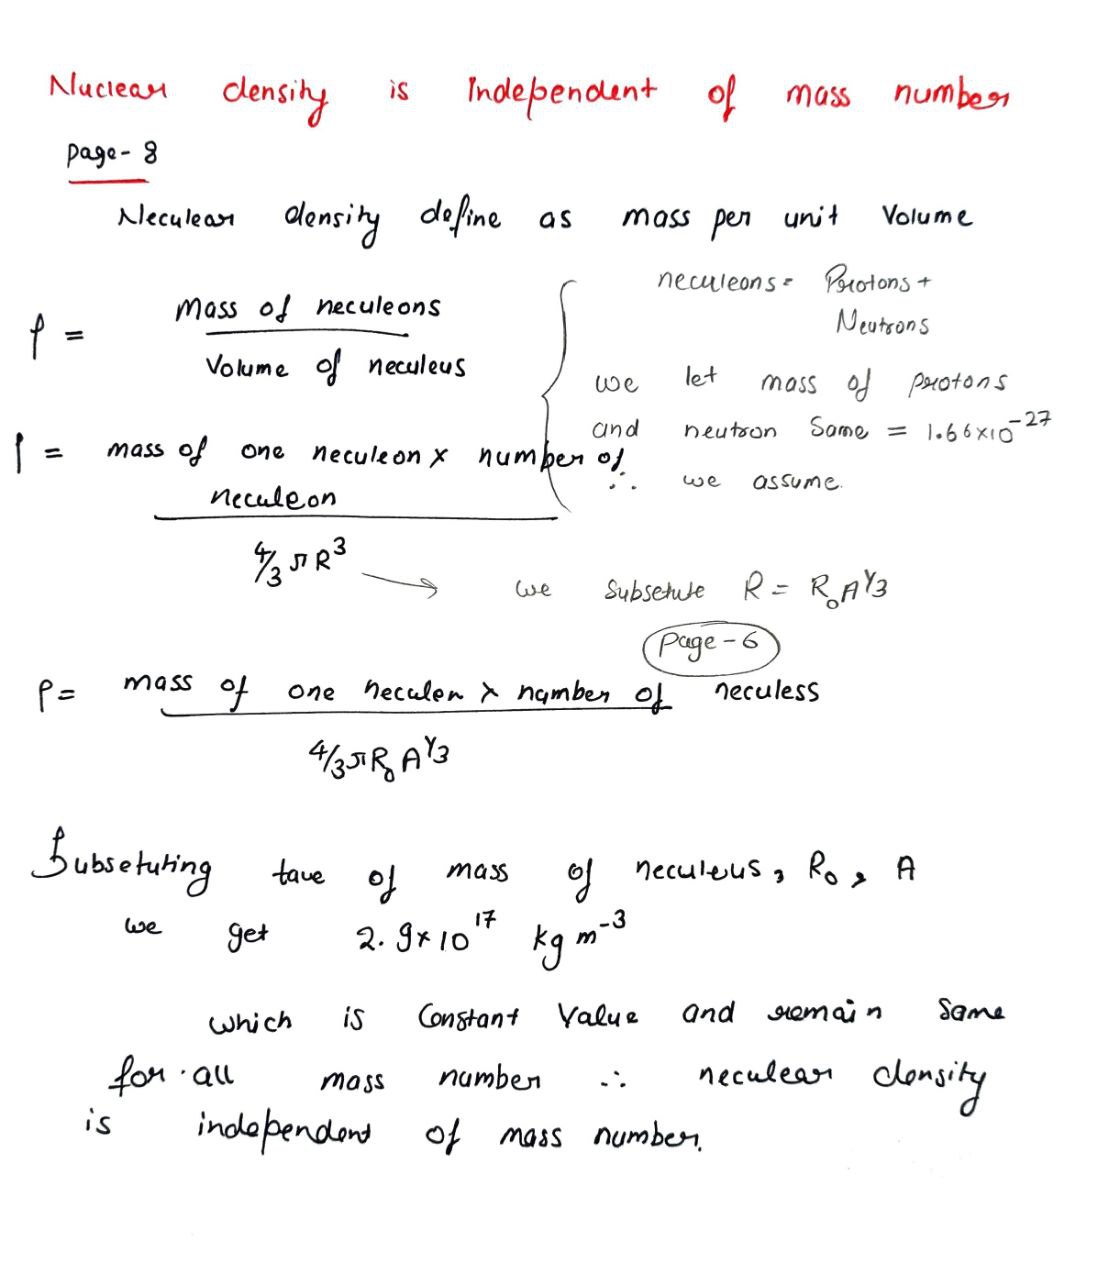 Nuclear density is Independent of mass number
page- 8
Neculear density define as mass per unit Volume
neculeons = Protons +
Neutrons
ρ = Mass of neculeons / Volume of neculeus
we let mass of protons
and neutron Same = 1.66×10⁻²⁷
∴ we assume.
ρ = mass of one neculeon × number of
neculeon
4/3 π R³ → we Subsetute R = R₀A^1/3
Page-6
ρ = mass of one neculen × number of neculess
4/3 π R₀ A^1/3
Subsetuting of mass of neculeus, R₀, A
we get 2.9×10¹⁷ kg m⁻³
which is Constant Value and remain Same
for all mass number ∴ neculear density
is independent of mass number.